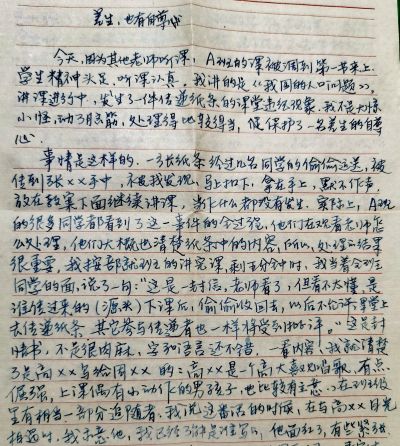 差生,也有自尊心
今天,因为其他老师听课,A班的课被调到第一节来上.
学生精神头足,听课认真,我讲的是《我国的人口问题》,
讲课进行中,发生了一件传递纸条的课堂违纪现象,我不是大惊
小怪,动了月脑筋,处理得比较得当,使保护了一名差生的自尊
心。
事情是这样的.一张纸条经过几名同学的偷偷运送,被
传到张××手中,被我发现,马上扣下,拿在手上,默不作声,
放在教案下面继续讲课,当作什么都没有发生,实际上,A班
的很多同学都看到了这一事件的全过程,他们在观看老师怎
么处理,他们大概也清楚纸条中的内容,所以,处理的结果
很重要,我按部就班的讲完课,剩下五分钟时,我当着全班
同学的面,说了一句:“这是一封信,老师看了,但看不懂,是
谁传过来的(源头)下课后,偷偷收回去,以后不允许课堂上
去传递纸条.其它参与传递者也一样将受到批评。”这是封
情书,不是很肉麻,字和语言还不错.看内容,我就清楚
了是高××写给田××的;高××是个高大喜欢唱歌,有点
倔强,上课偶有小动作的男孩子,也比较有主意、在班级
里有相当一部分追随者.我说这番话的时候,在与高××目光
相遇时,我示意他,我已经了解是谁写的,他面红了,有些紧张,